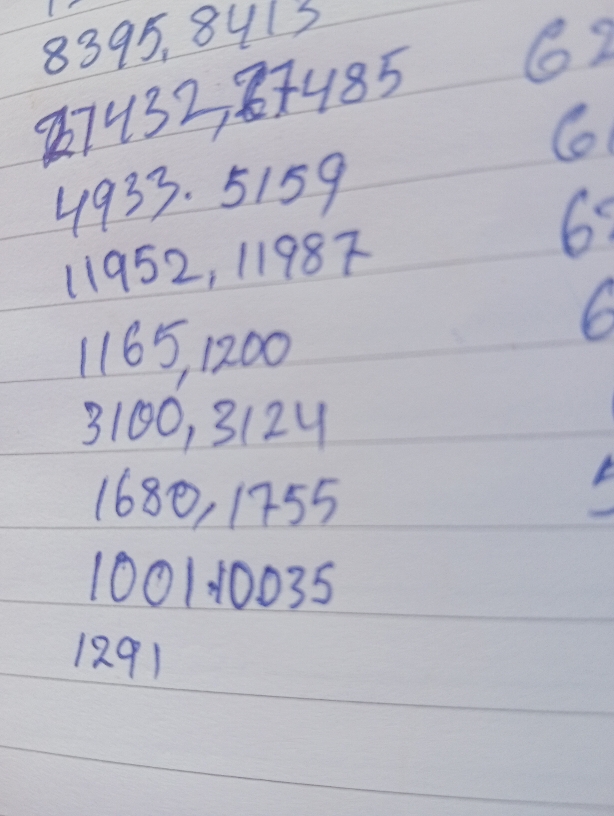 8395, 8413
27432, 27485
4933. 5159
11952, 11987
1165, 1200
3100, 3124
1680, 1755
1001.10035
1291